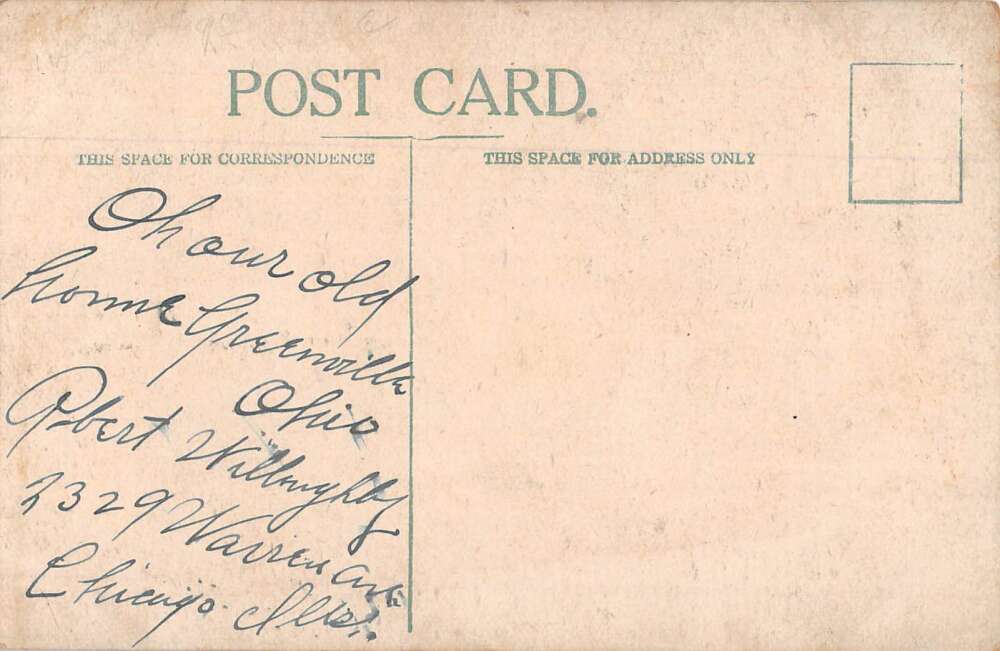 POST CARD.
THIS SPACE FOR CORRESPONDENCE
THIS SPACE FOR ADDRESS ONLY
Oh our old
home Greenville
Ohio
Robert Willoughby
2329 Warren Ave
Chicago. Ills.